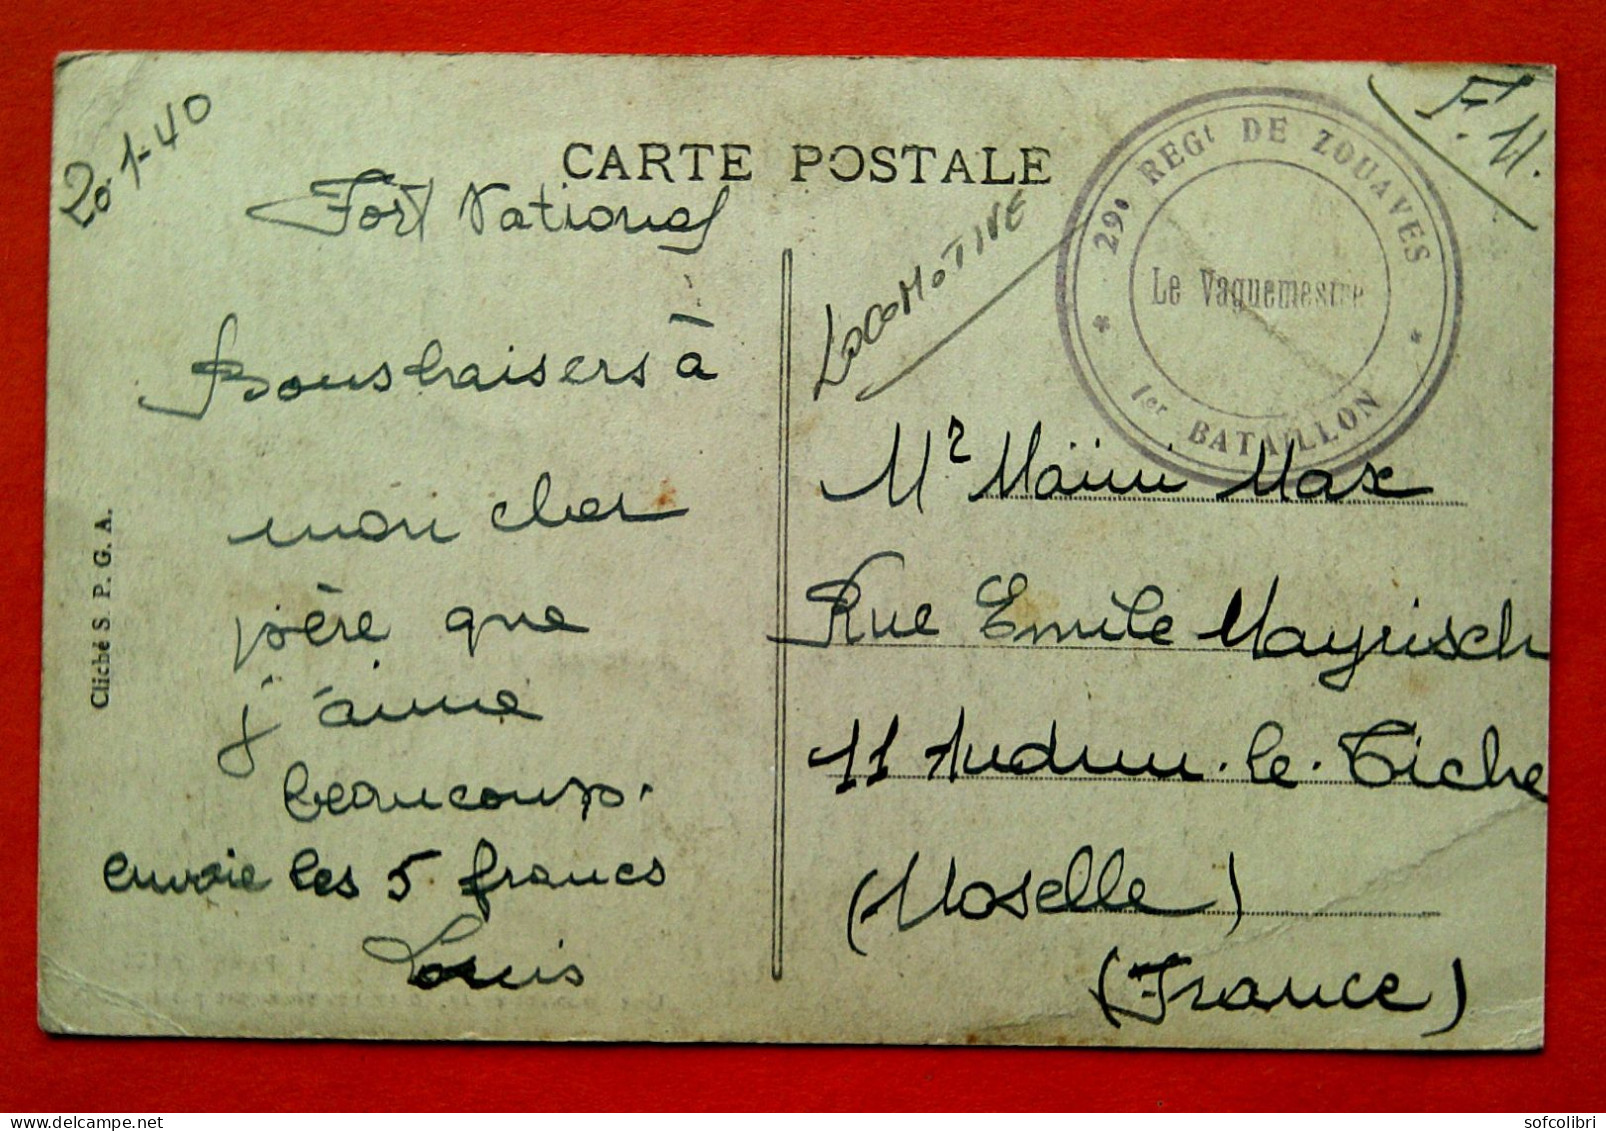 20-1-40
CARTE POSTALE
Fort National
Bons baisers à
mon cher
père que
j'aime
beaucoup.
envoie les 5 francs
Louis
Cliché S. P. G. A.
F. M.
LOCOMOTIVE
29e REGt DE ZOUAVES
Le Vaguemestre
* 1er BATAILLON *
Mr Maïni Max
Rue Emile Mayrisch
11 Audun-le-Tiche
(Moselle)
(France)
sofcolibri